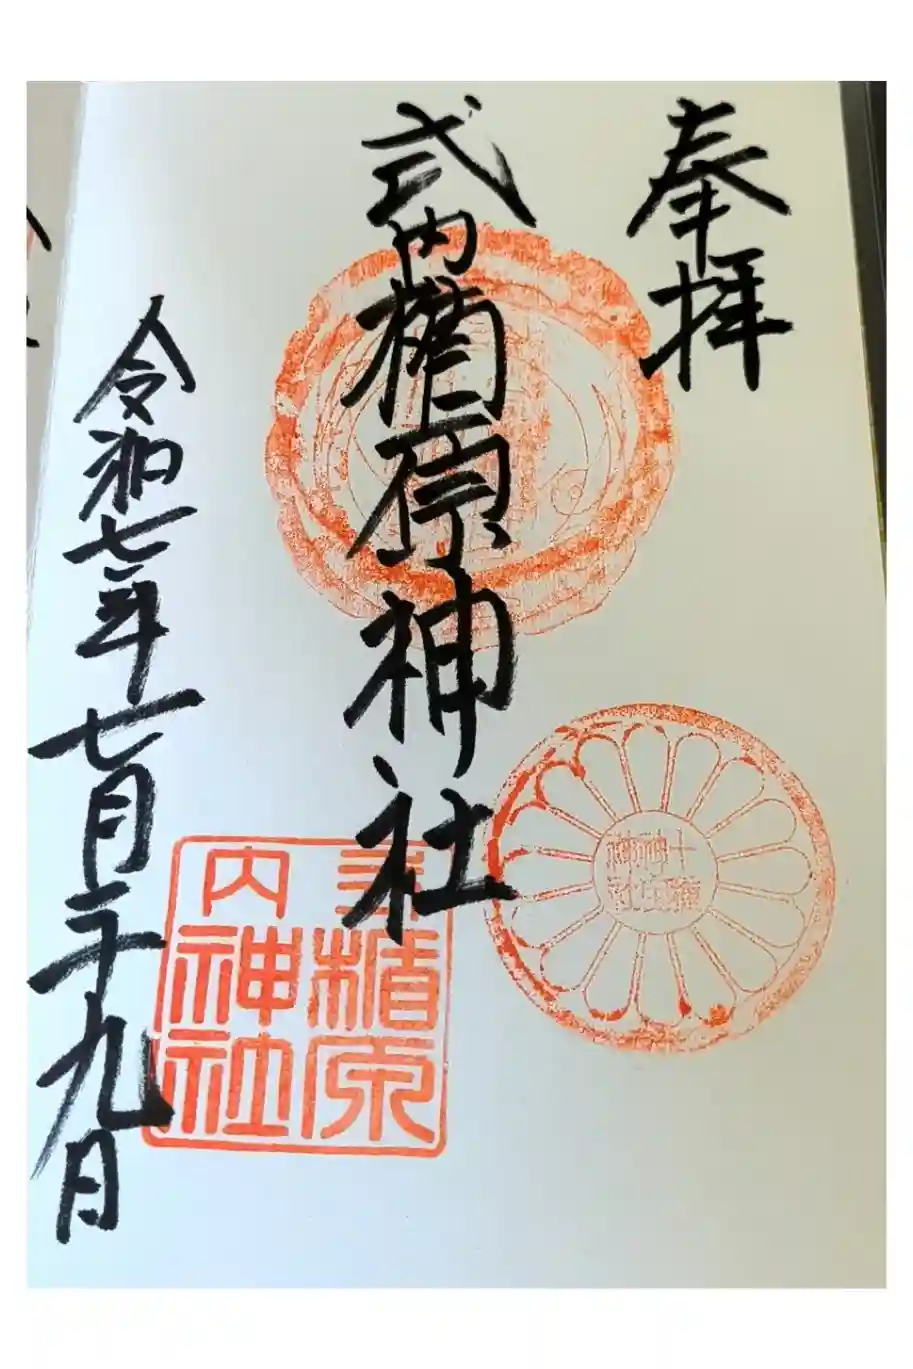 奉拝
式内楯原神社
令和七年七月二十九日
式楯原
内神社